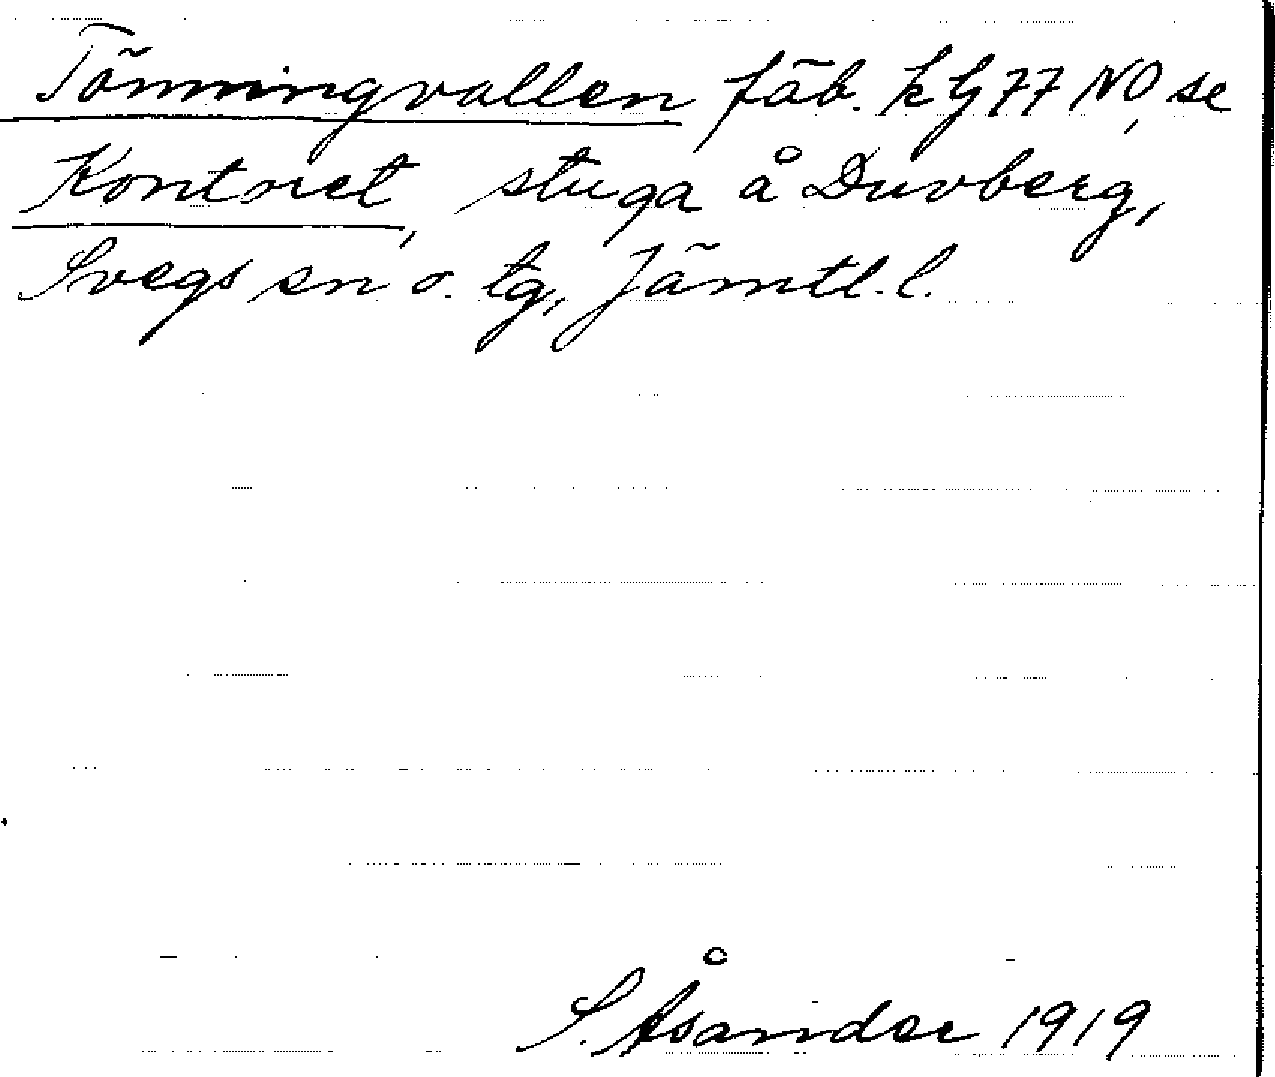 Tönningvallen fäb. k bj 77 NO, se
Kontoret, stuga å Duvberg,
Svegs sn o. tg, Jämtl. l.
S. Åsander 1919